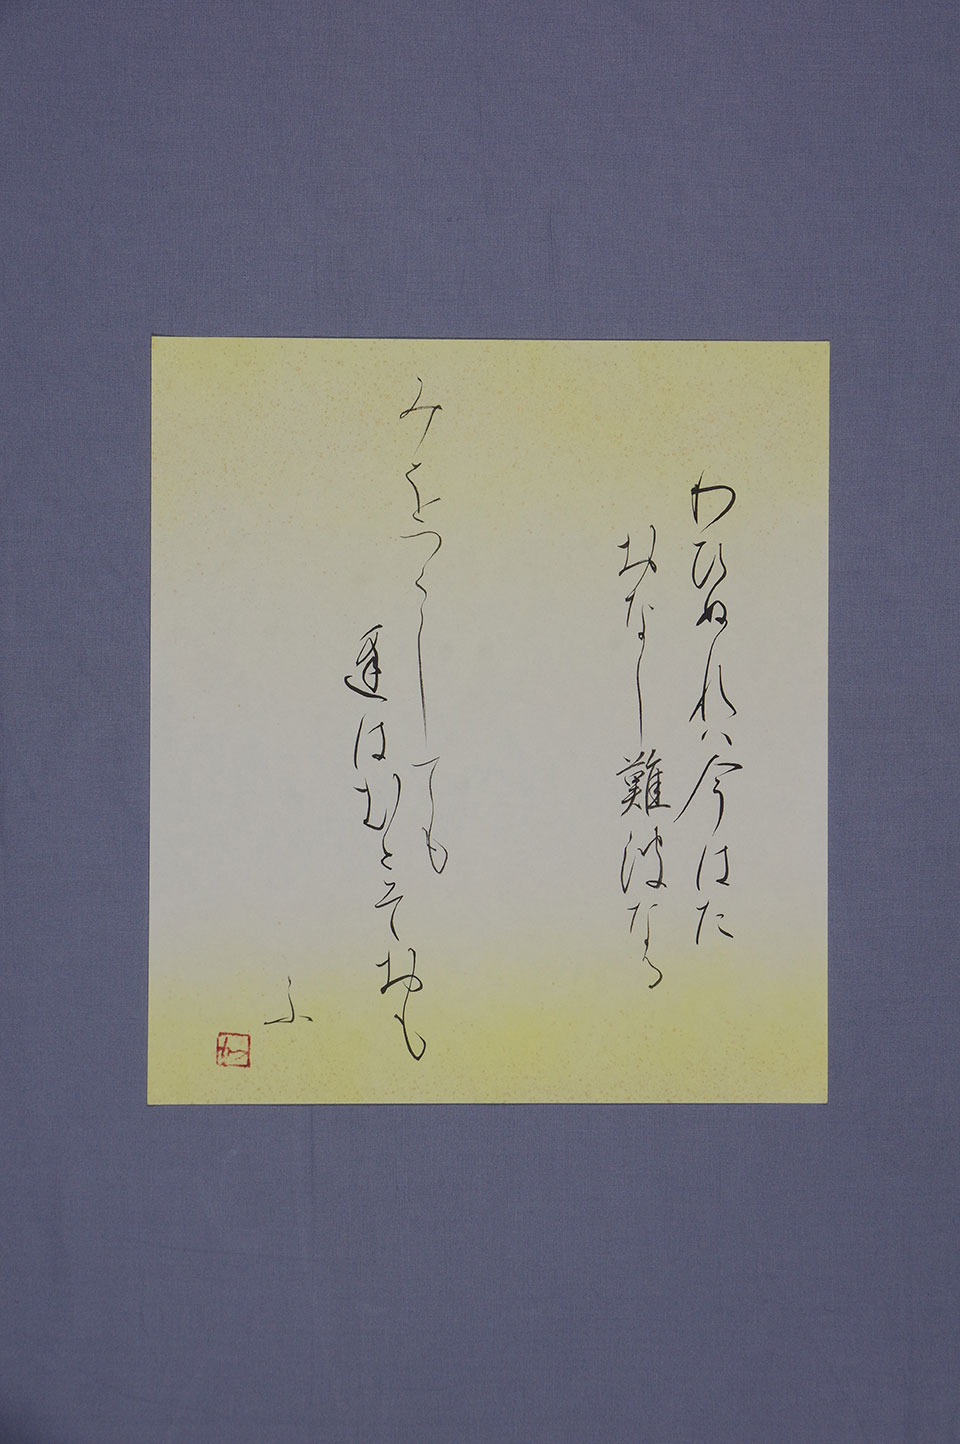 わひぬれハ今はた
おなし難波なる
みをつくしても
逢はむとそおも
ふ